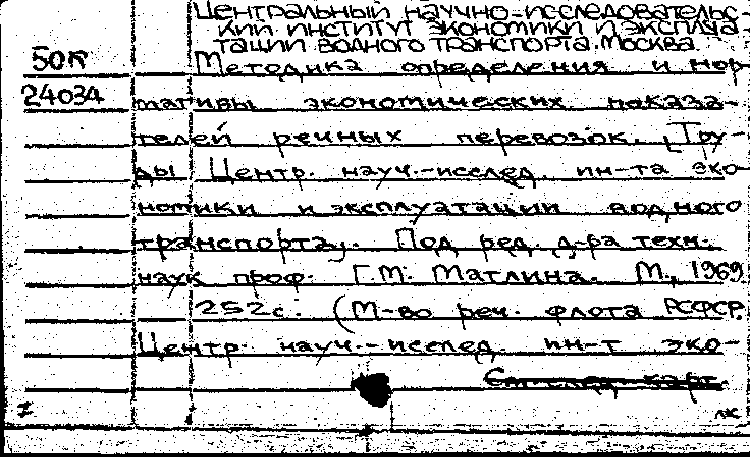 Центральный научно-исследовательс-
кий институт экономики и эксплуа-
тации водного транспорта. Москва.
50к
Методика определения и нор-
24034
мативы экономических показа-
телей речных перевозок. [Тру-
ды Центр. науч.-исслед. ин-та эко-
номики и эксплуатации водного
транспорта]. Под ред. д-ра техн.
наук проф. Г.М. Матлина. М., 1969
252 с. (М-во реч. флота РСФСР.
Центр. науч.-исслед. ин-т эко-
См. след. карт.